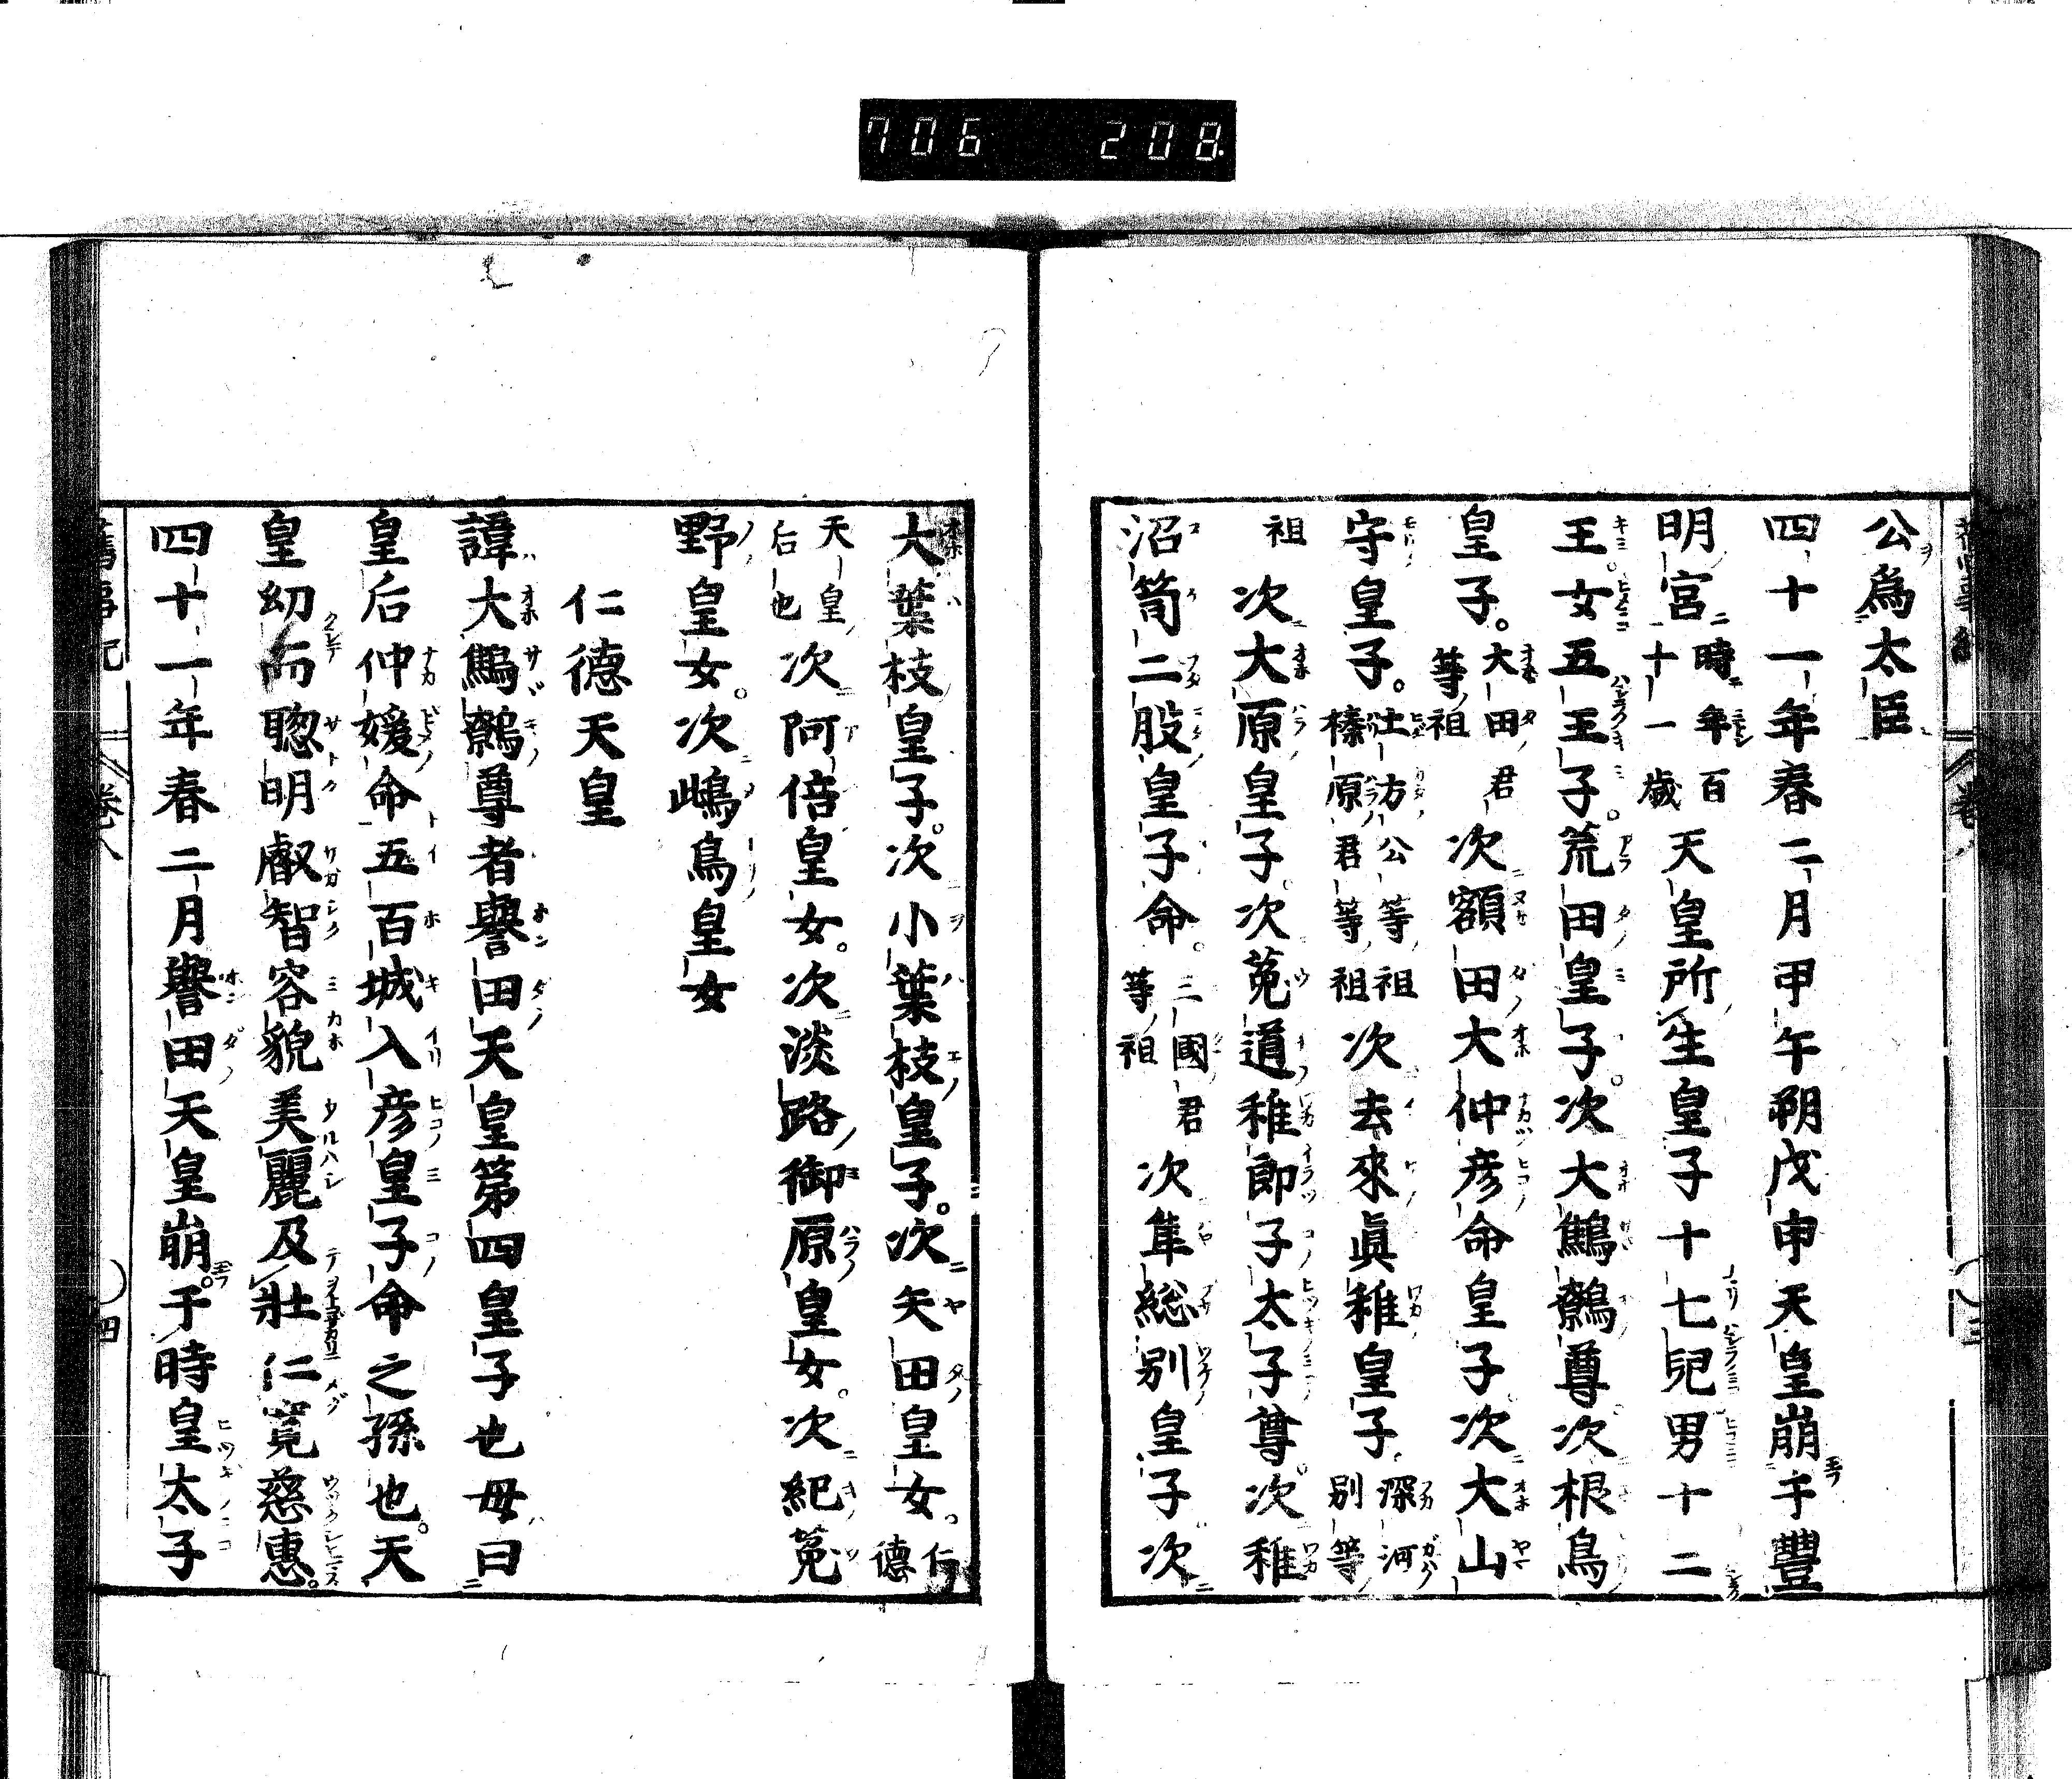 706 208
公爲太臣
四十一年春二月甲午朔戊申天皇崩于豐
明宮時年百十一歲天皇所生皇子十七兒男十二
王女五王子。荒田皇子。次大鷦鷯尊次根鳥
皇子。大田君等祖次額田大仲彦命皇子次大山
守皇子。土方公等祖榛原君等祖次去來眞稚皇子深河別等
祖次大原皇子次菟道稚郎子太子尊次稚
沼笥二股皇子命。三國君等祖次隼総別皇子次
大葉枝皇子。次小葉枝皇子。次矢田皇女。仁德
天皇后也次阿倍皇女。次淡路御原皇女。次紀菟
野皇女。次嶋鳥皇女
仁德天皇
諱大鷦鷯尊者譽田天皇第四皇子也母曰
皇后仲媛命五百城入彦皇子命之孫也。天
皇幼而聰明叡智容貌美麗及壯仁寬慈惠。
四十一年春二月譽田天皇崩。于時皇太子
舊事記 卷八 四